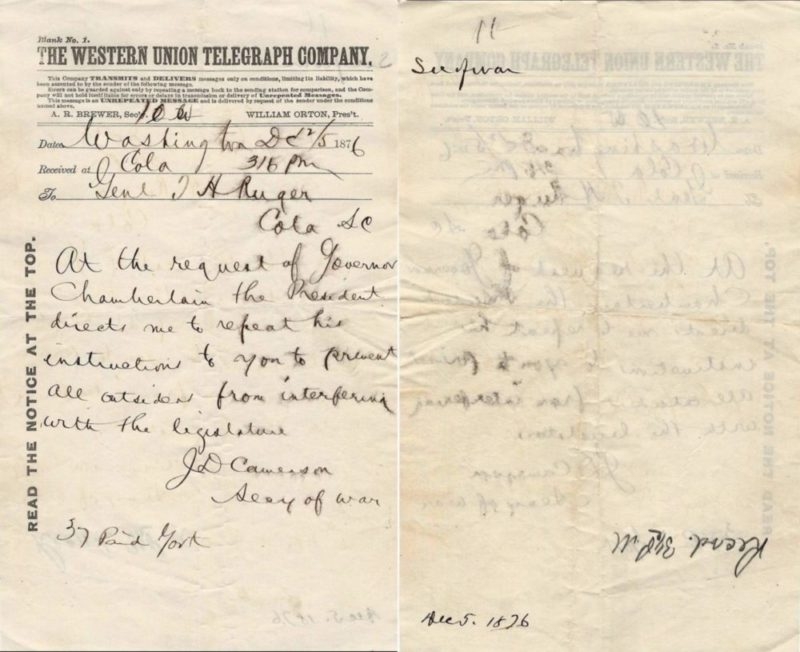 Blank No. 1.
THE WESTERN UNION TELEGRAPH COMPANY.
This Company TRANSMITS and DELIVERS messages only on conditions, limiting its liability, which have
been assented to by the sender of the following message.
Errors can be guarded against only by repeating a message back to the sending station for comparison, and the Com-
pany will not hold itself liable for errors or delays in transmission or delivery of Unrepeated Messages.
This message is an UNREPEATED MESSAGE and is delivered by request of the sender under the conditions
named above.
A. R. BREWER, Sec'y. WILLIAM ORTON, Pres't.
Dated Washington DC 12/5 1876
Received at Cola 316 pm
To Genl T H Ruger
Cola SC
At the request of Governor
Chamberlain the President
directs me to repeat his
instruction to you to prevent
all outsiders from interfering
with the legislature
J D Cameron
Secy of War
37 Paid Govt
READ THE NOTICE AT THE TOP.
11
Sec of war
Recd. 3
Dec 5. 1876